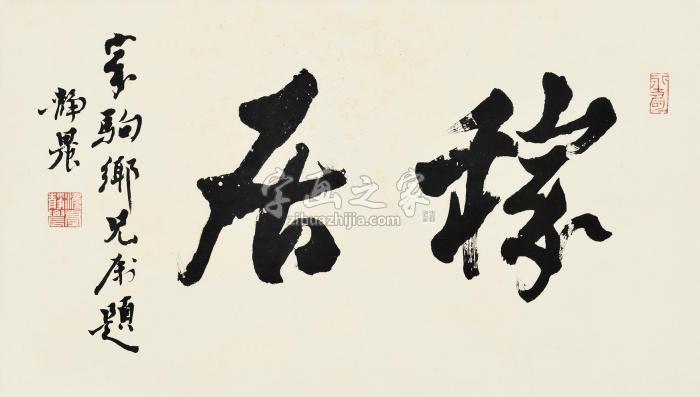 稼居
家駒鄉兄屬題
靜農
字画之家
zihuazhijia.com